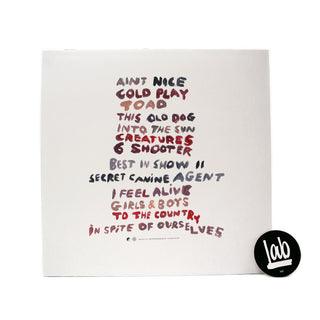 AINT NICE
COLD PLAY
TOAD
THIS OLD DOG
INTO THE SUN
CREATURES
6 SHOOTER
BEST IN SHOW II
SECRET CANINE AGENT
I FEEL ALIVE
GIRLS & BOYS
TO THE COUNTRY
IN SPITE OF OURSELVES
lab